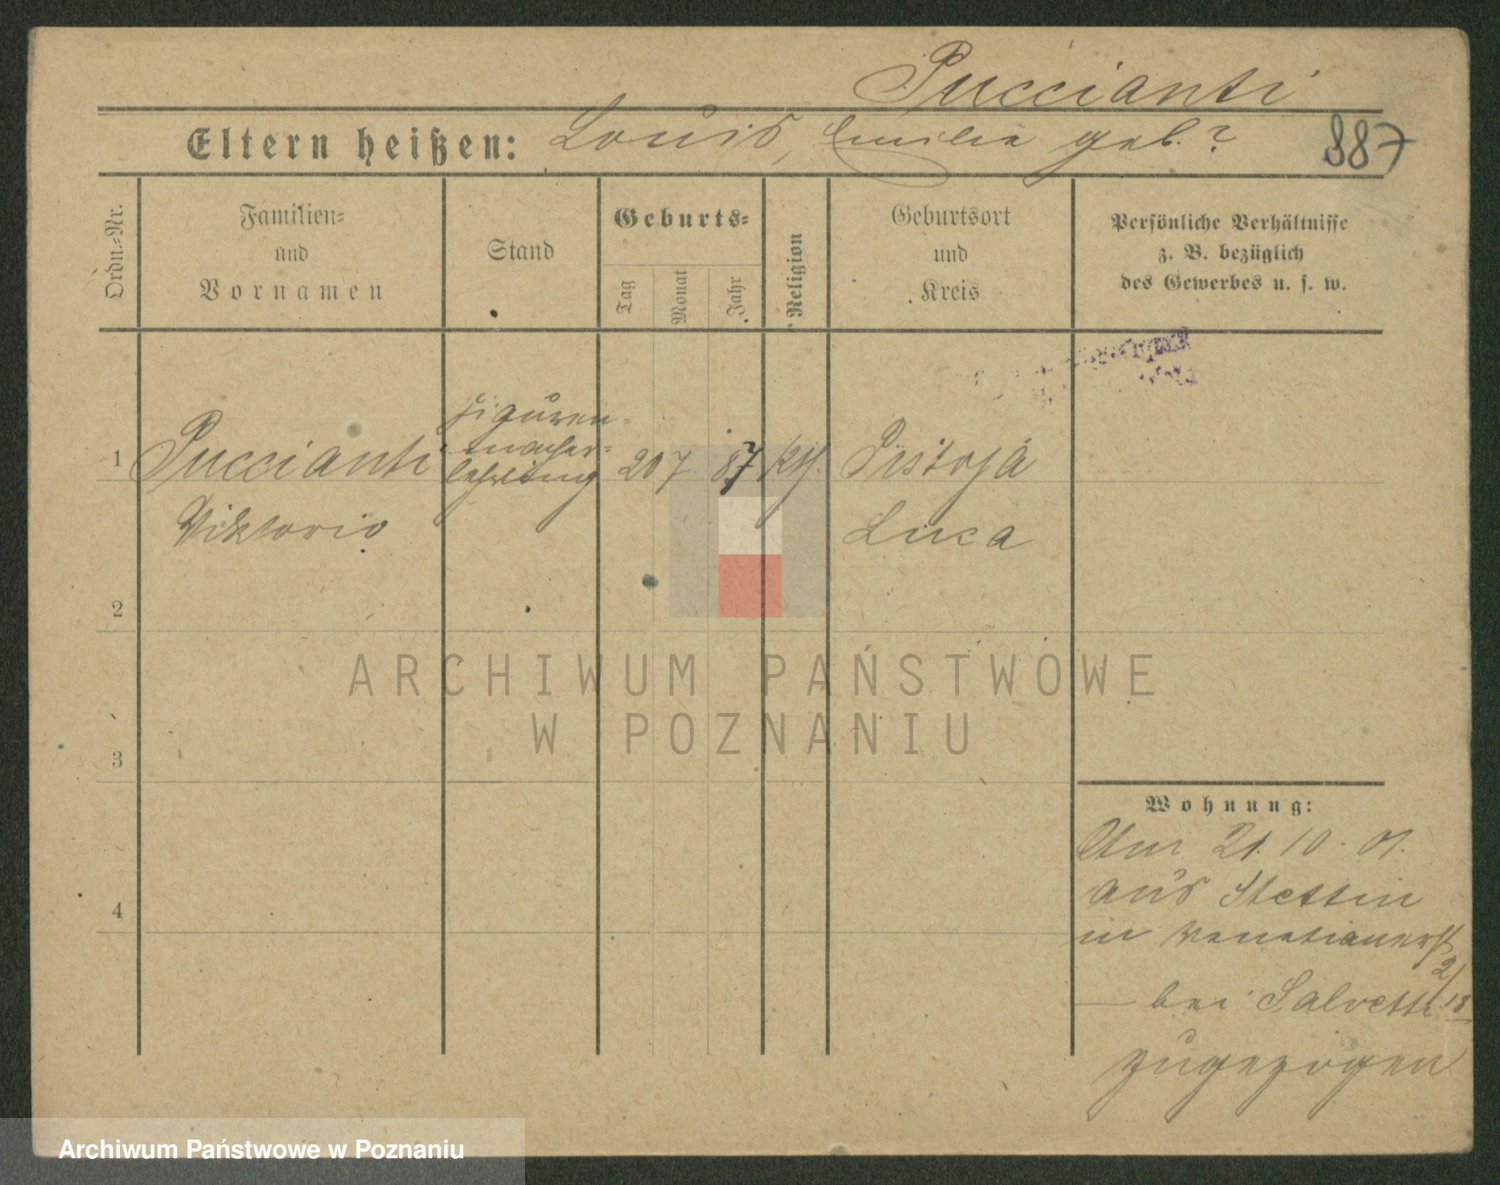 Puccianti
Eltern heißen: Louis, Emilie geb. ?
887
Ordn.-Nr.
Familien-
und
Vornamen
Stand
Geburts-
Tag
Monat
Jahr
Religion
Geburtsort
und
Kreis
Persönliche Verhältnisse
z. B. bezüglich
des Gewerbes u. s. w.
Figuren-
macher-
1 Puccianti lehrling 20 7 87 kth. Pistoja
Viktorio Luca
2
ARCHIWUM PAŃSTWOWE
W POZNANIU
3
Wohnung:
Am 21. 10. 01.
aus Stettin
4
in Venetianerst
2/18
bei Salvetti
zugezogen
Archiwum Państwowe w Poznaniu